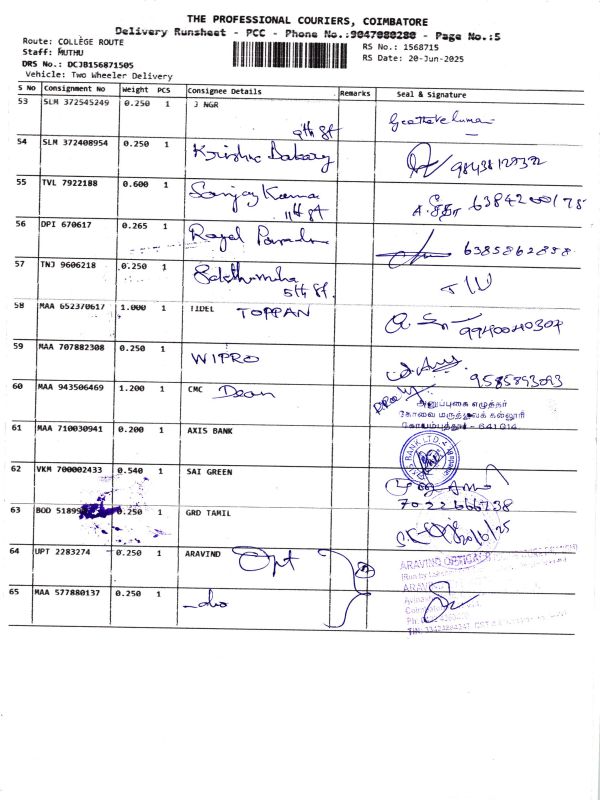 THE PROFESSIONAL COURIERS, COIMBATORE
Delivery Runsheet - PCC - Phone No.:9047080280 - Page No.:5
Route: COLLEGE ROUTE
RS No.: 1568715
Staff: MUTHU
RS Date: 20-Jun-2025
DRS No.: DCJB156871505
Vehicle: Two Wheeler Delivery
S No Consignment No Weight PCS Consignee Details Remarks Seal & Signature
53 SLM 372545249 0.250 1 J NGR
9th st
54 SLM 372408954 0.250 1 Krishna Bakery
55 TVL 7922188 0.600 1 Sanjay Kumar
11th st
56 DPI 670617 0.265 1 Royal 6385862858
57 TNJ 9606218 0.250 1
5th st.
58 MAA 652370617 1.000 1 TIDEL TOPPAN 9940040307
59 MAA 707882308 0.250 1 WIPRO 9585893093
60 MAA 943506469 1.200 1 CMC Dean
அனுப்புகை எழுத்தர்
கோவை மருத்துவக் கல்லூரி
கோயம்புத்தூர் - 641 014
61 MAA 710030941 0.200 1 AXIS BANK
62 VKM 700002433 0.540 1 SAI GREEN
7022666238
63 BOD 0.250 1 GRD TAMIL 20/6/25
64 UPT 2283274 0.250 1 ARAVIND Opt
ARAVIND
65 MAA 577880137 0.250 1 -do